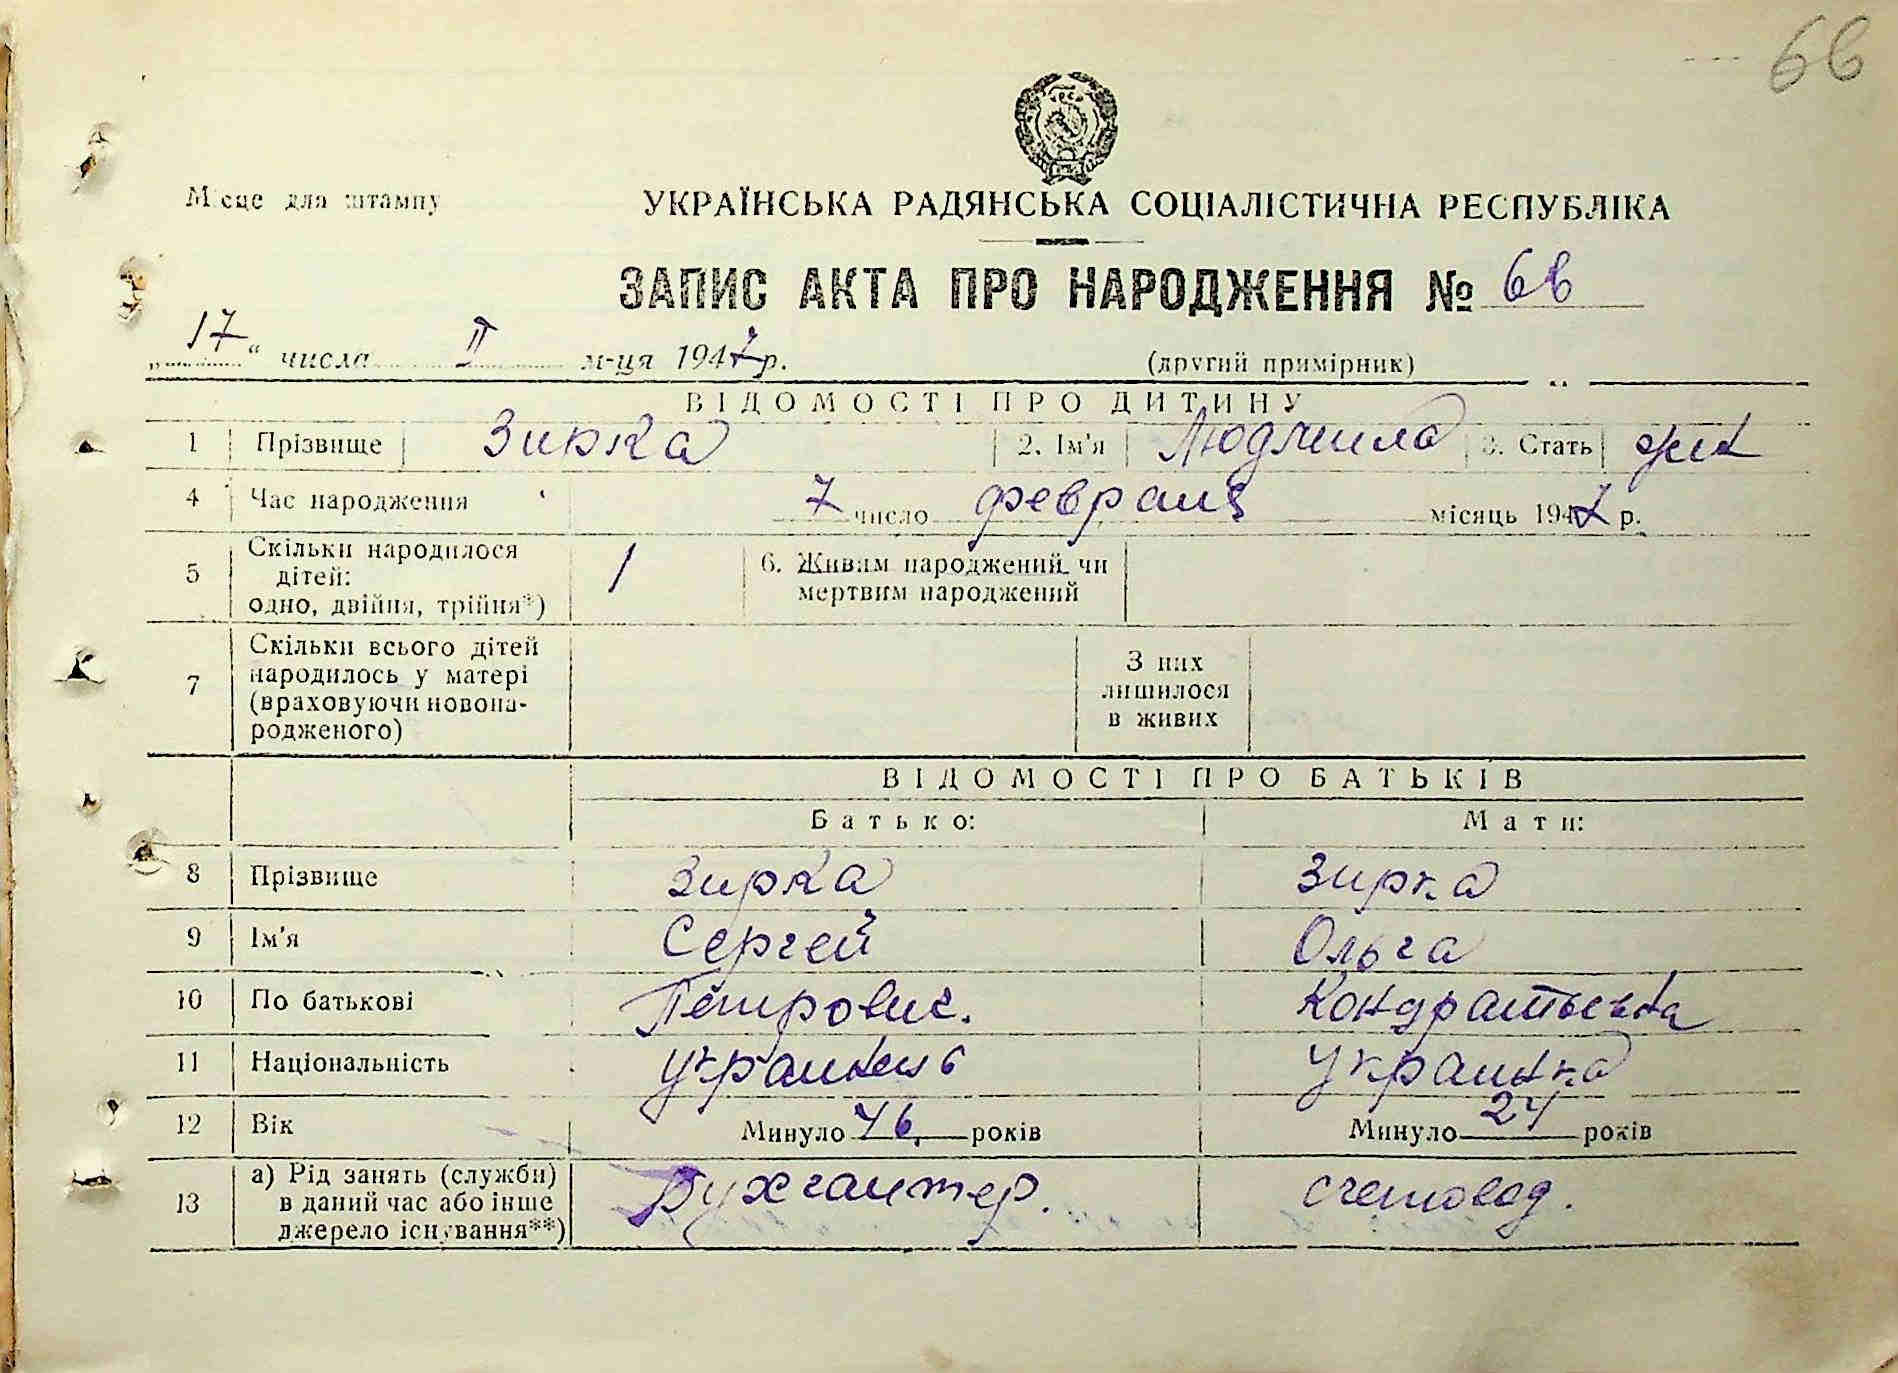 66
Місце для штампу
УКРАЇНСЬКА РАДЯНСЬКА СОЦІАЛІСТИЧНА РЕСПУБЛІКА
ЗАПИС АКТА ПРО НАРОДЖЕННЯ № 66
„17“ числа II м-ця 1947 р. (другий примірник)
ВІДОМОСТІ ПРО ДИТИНУ
1 Прізвище Зирка 2. Ім'я Людмила 3. Стать жен
4 Час народження 7 число февраля місяць 1947 р.
5 Скільки народилося дітей: одно, двійня, трійня*) 1 6. Живим народжений чи мертвим народжений
7 Скільки всього дітей народилось у матері (враховуючи новонародженого) З них лишилося в живих
ВІДОМОСТІ ПРО БАТЬКІВ
Батько: Мати:
8 Прізвище Зирка Зирка
9 Ім'я Сергей Ольга
10 По батькові Петрович. Кондратьевна
11 Національність украинец украинка
12 Вік Минуло 46 років Минуло 24 років
13 а) Рід занять (служби) в даний час або інше джерело існування**) Бухгалтер. счетовод.